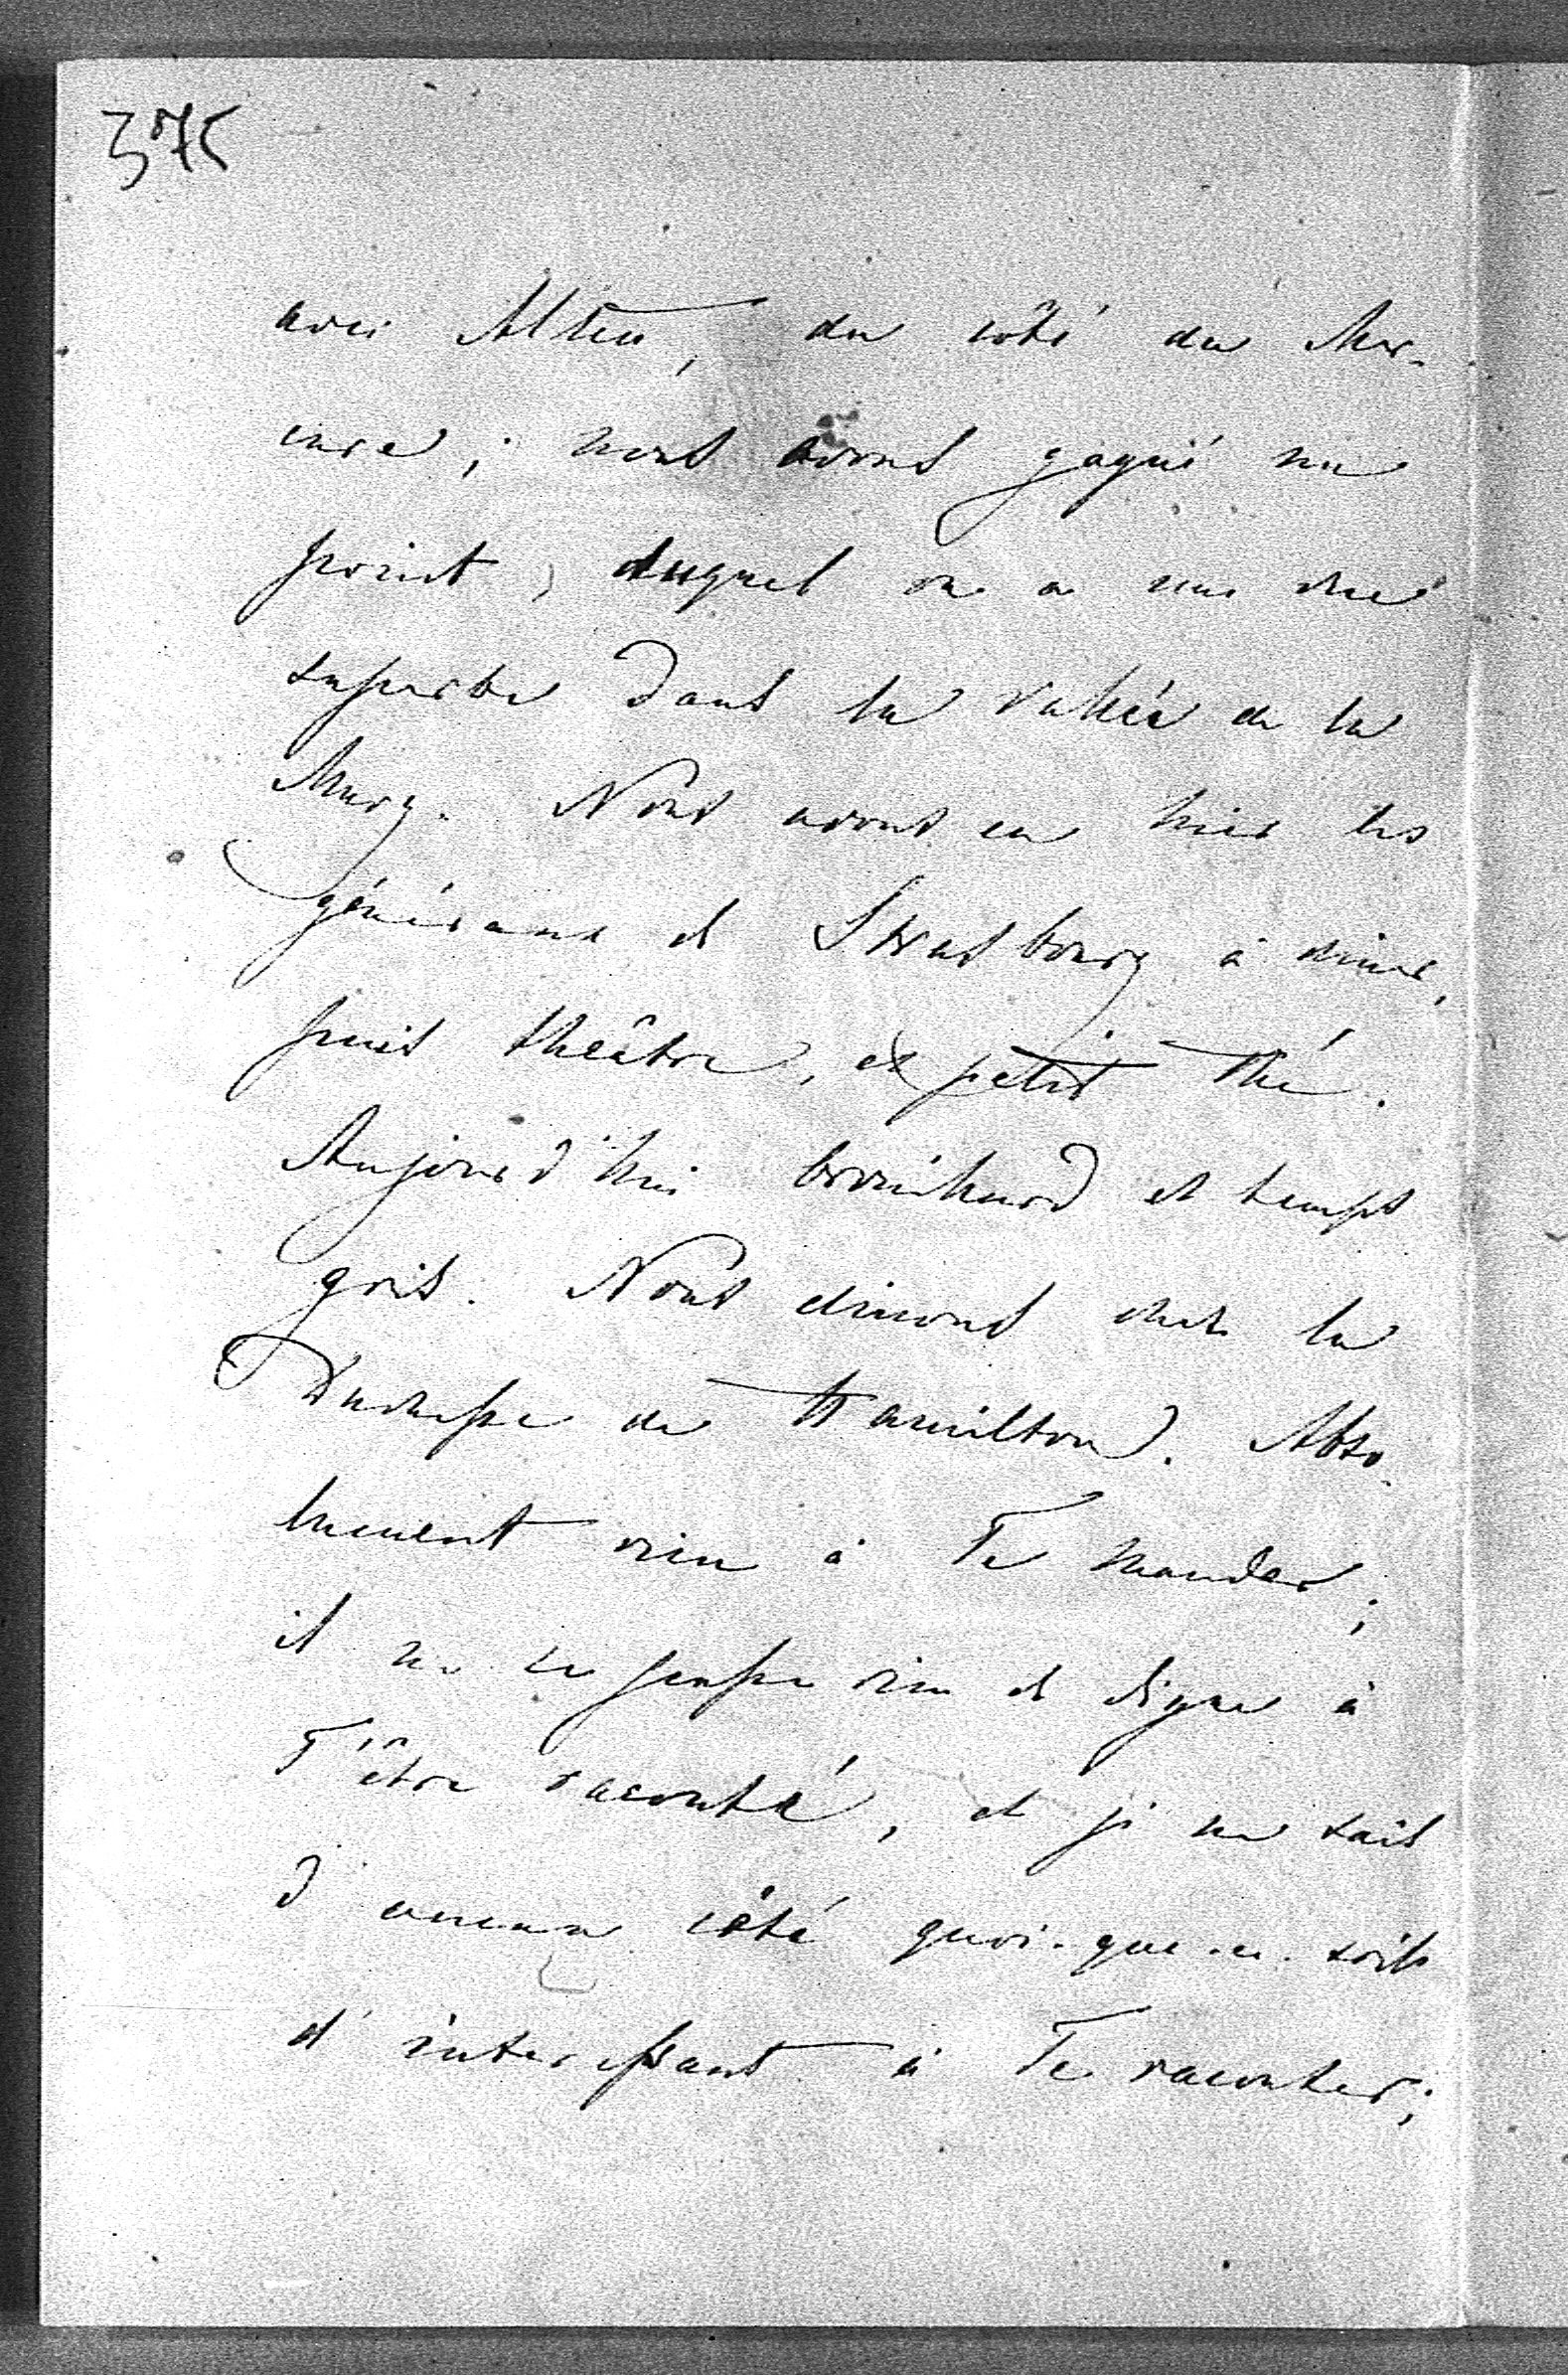 375
avec Alten, du côté du Mer-
cure; nous avons gagné un
point, duquel on a une vue
superbe dans la vallée de la
Murg. Nous avons eu hier les
généraux de Strasbourg à dîner,
puis théâtre, et petit thé.
Aujourd'hui brouillard et temps
gris. Nous dinons chez la
Duchesse de Hamilton. Abso-
lument rien à Te mander;
il ne se passe rien de digne à
T'être raconté, et je ne sais
d'aucun côté quoi-que-ce-soit
d'interessant à Te raconter;